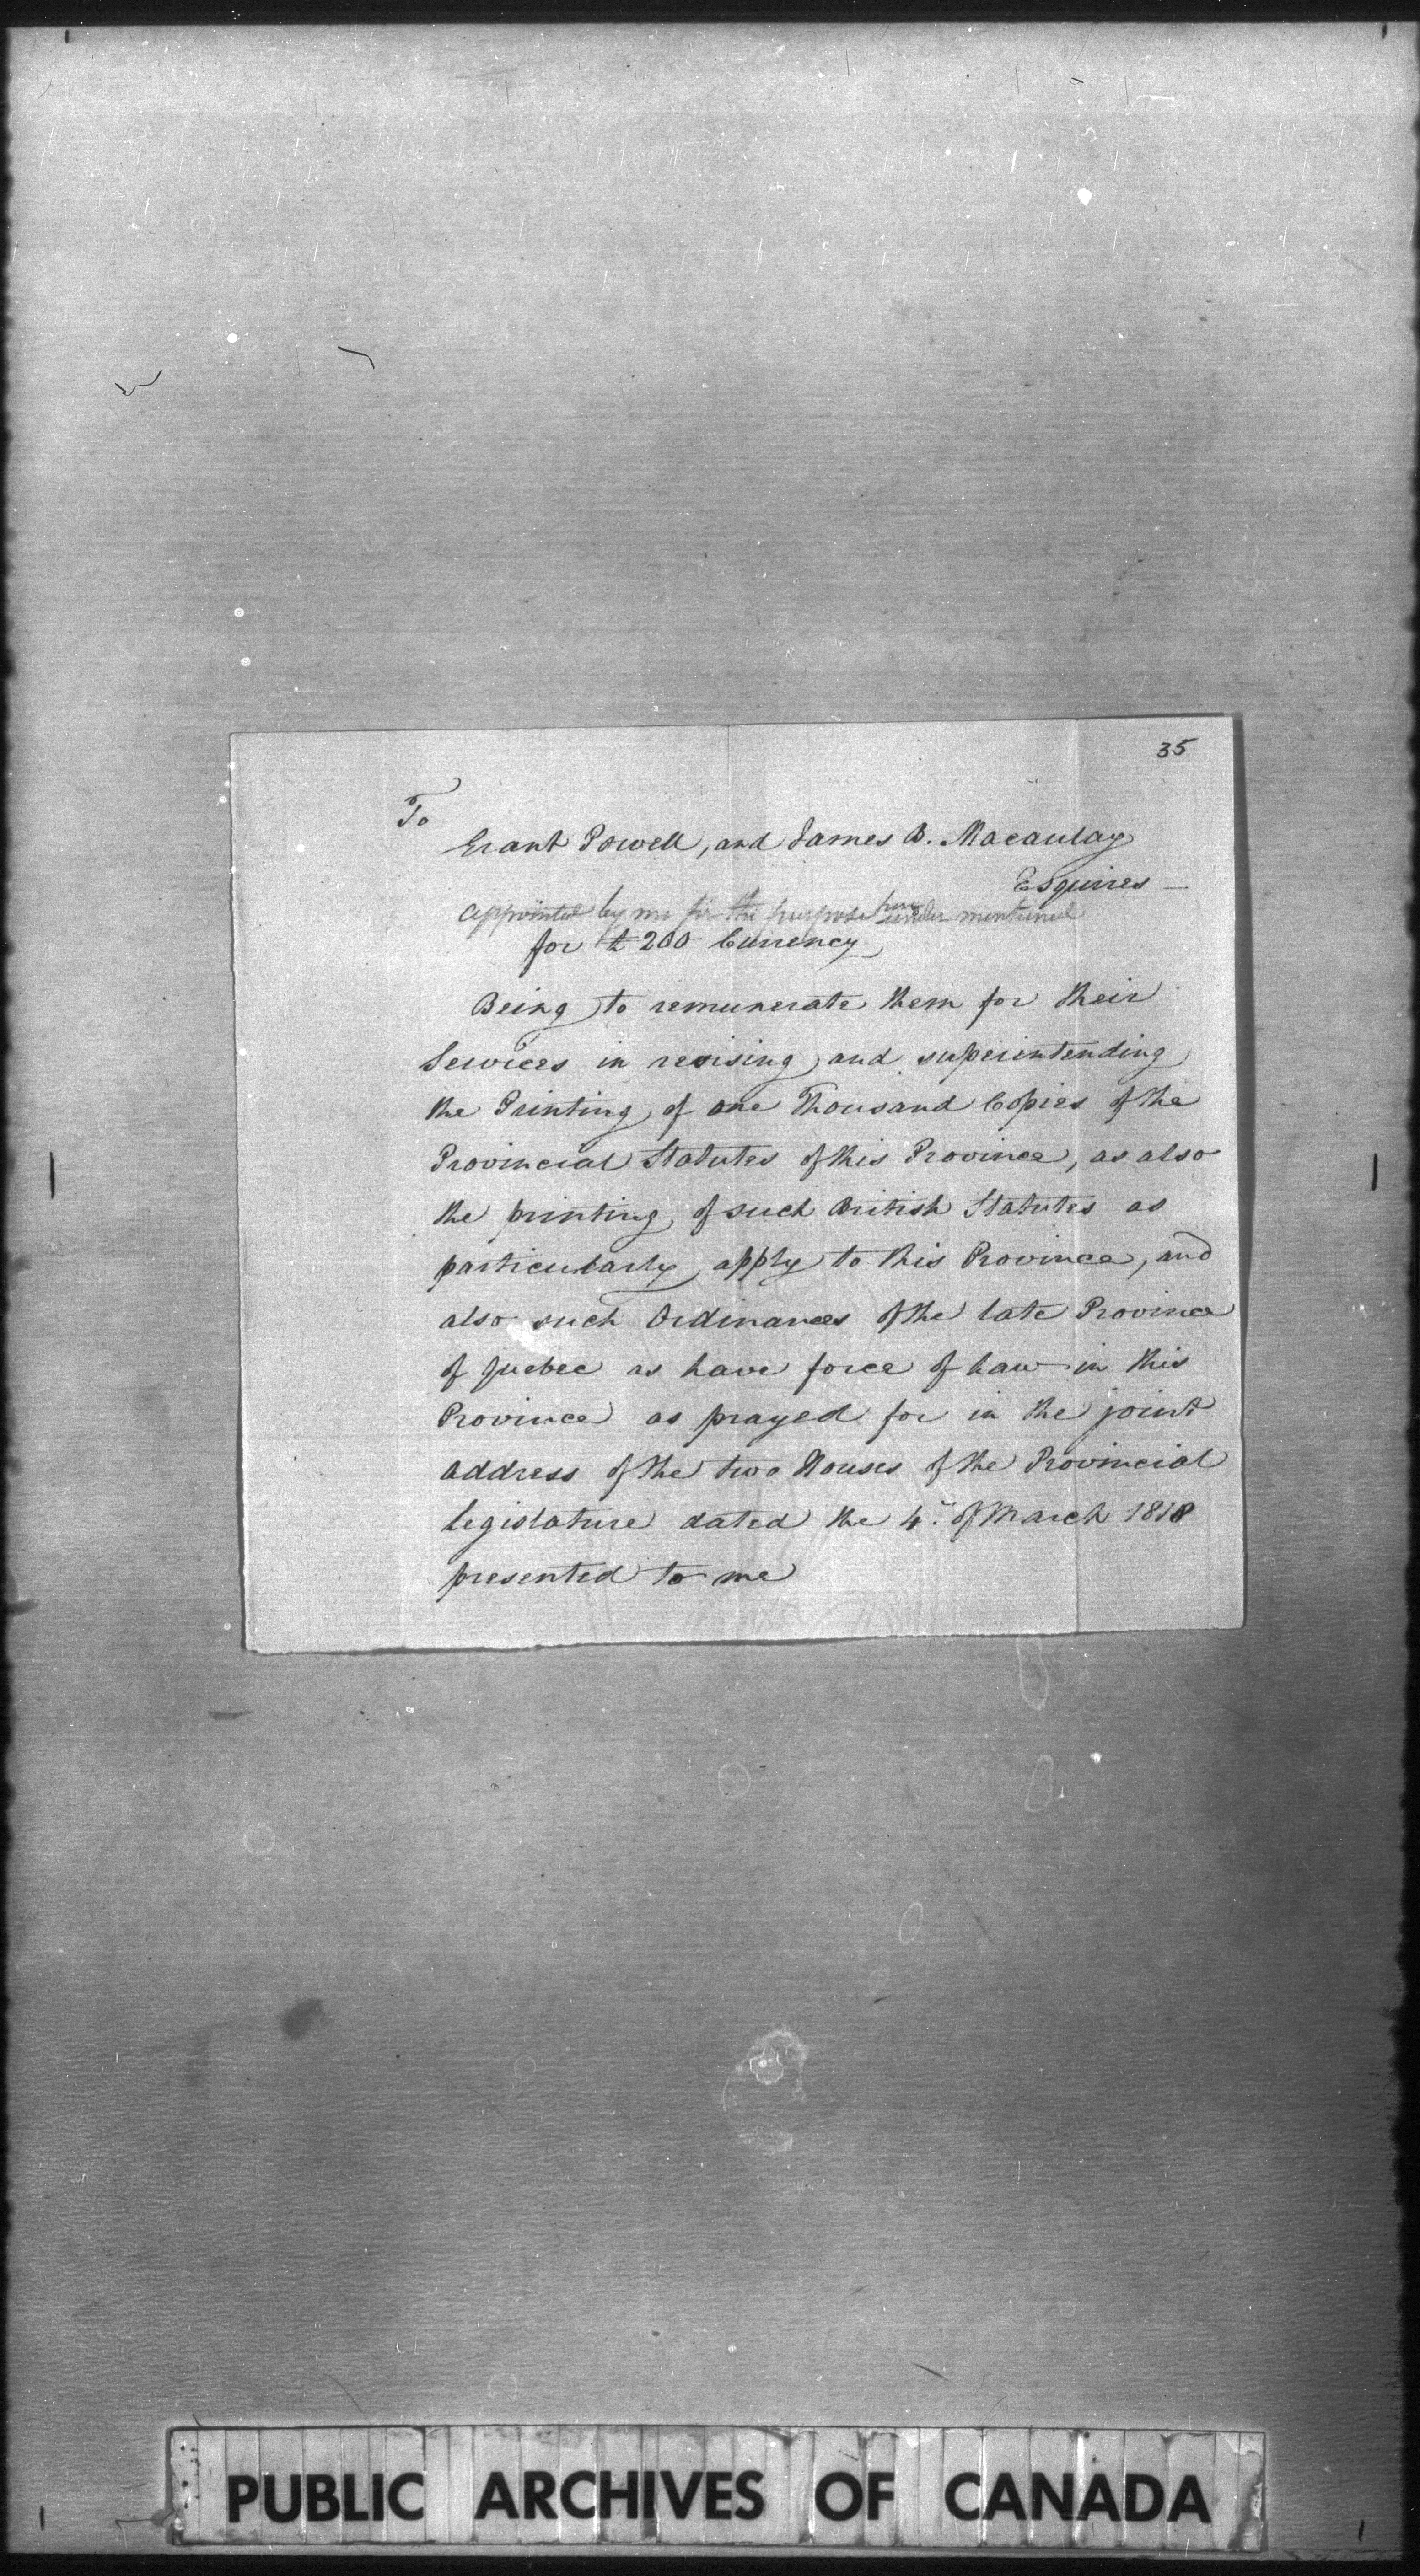 35
To
Grant Powell, and James B. Macaulay
Esquires —
appointed by me for the purpose here under mentioned
for £ 200 Currency
Being to remunerate them for their
Services in revising and superintending
the Printing of one Thousand Copies of the
Provincial Statutes of this Province, as also
the printing of such British Statutes as
particularly apply to this Province, and
also such Ordinances of the late Province
of Quebec as have force of Law in this
Province as prayed for in the joint
address of the two Houses of the Provincial
Legislature dated the 4. of March 1818
presented to me
PUBLIC ARCHIVES OF CANADA